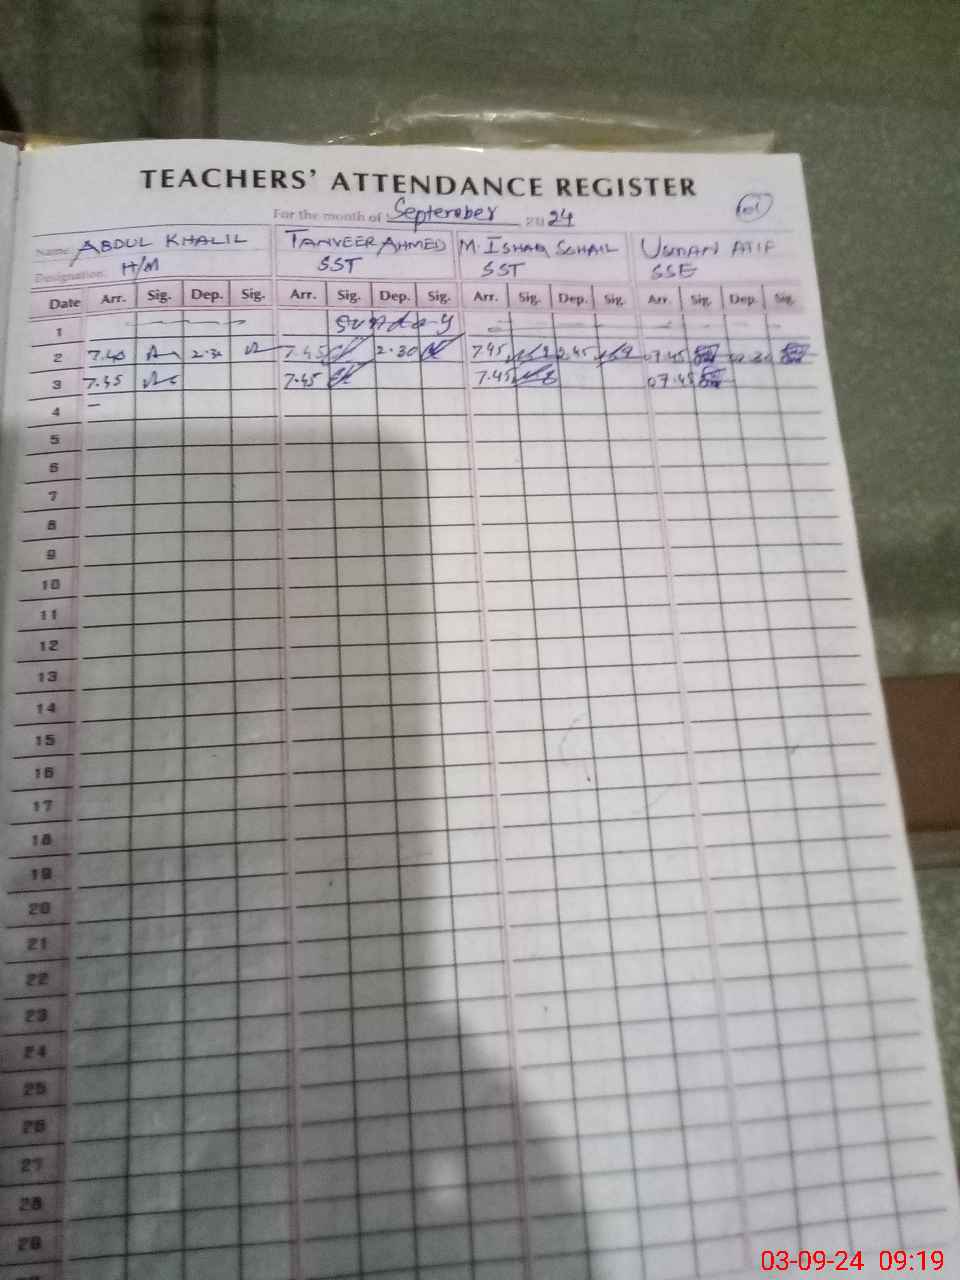 TEACHERS' ATTENDANCE REGISTER
For the month of September 2024
Name ABDUL KHALIL TANVEER AHMED M. ISHAQ SOHAIL USMAN ATIF
Designation: H/M SST SST SSE
Date Arr. Sig. Dep. Sig. Arr. Sig. Dep. Sig. Arr. Sig. Dep. Sig. Arr. Sig. Dep. Sig.
1 Sunday
2 7.40 7.45 2.30 7.45 2.45 07.45
3 7.45 7.45 7.45 07.45
4
5
6
7
8
9
10
11
12
13
14
15
16
17
18
19
20
21
22
23
24
25
26
27
28
03-09-24 09:19